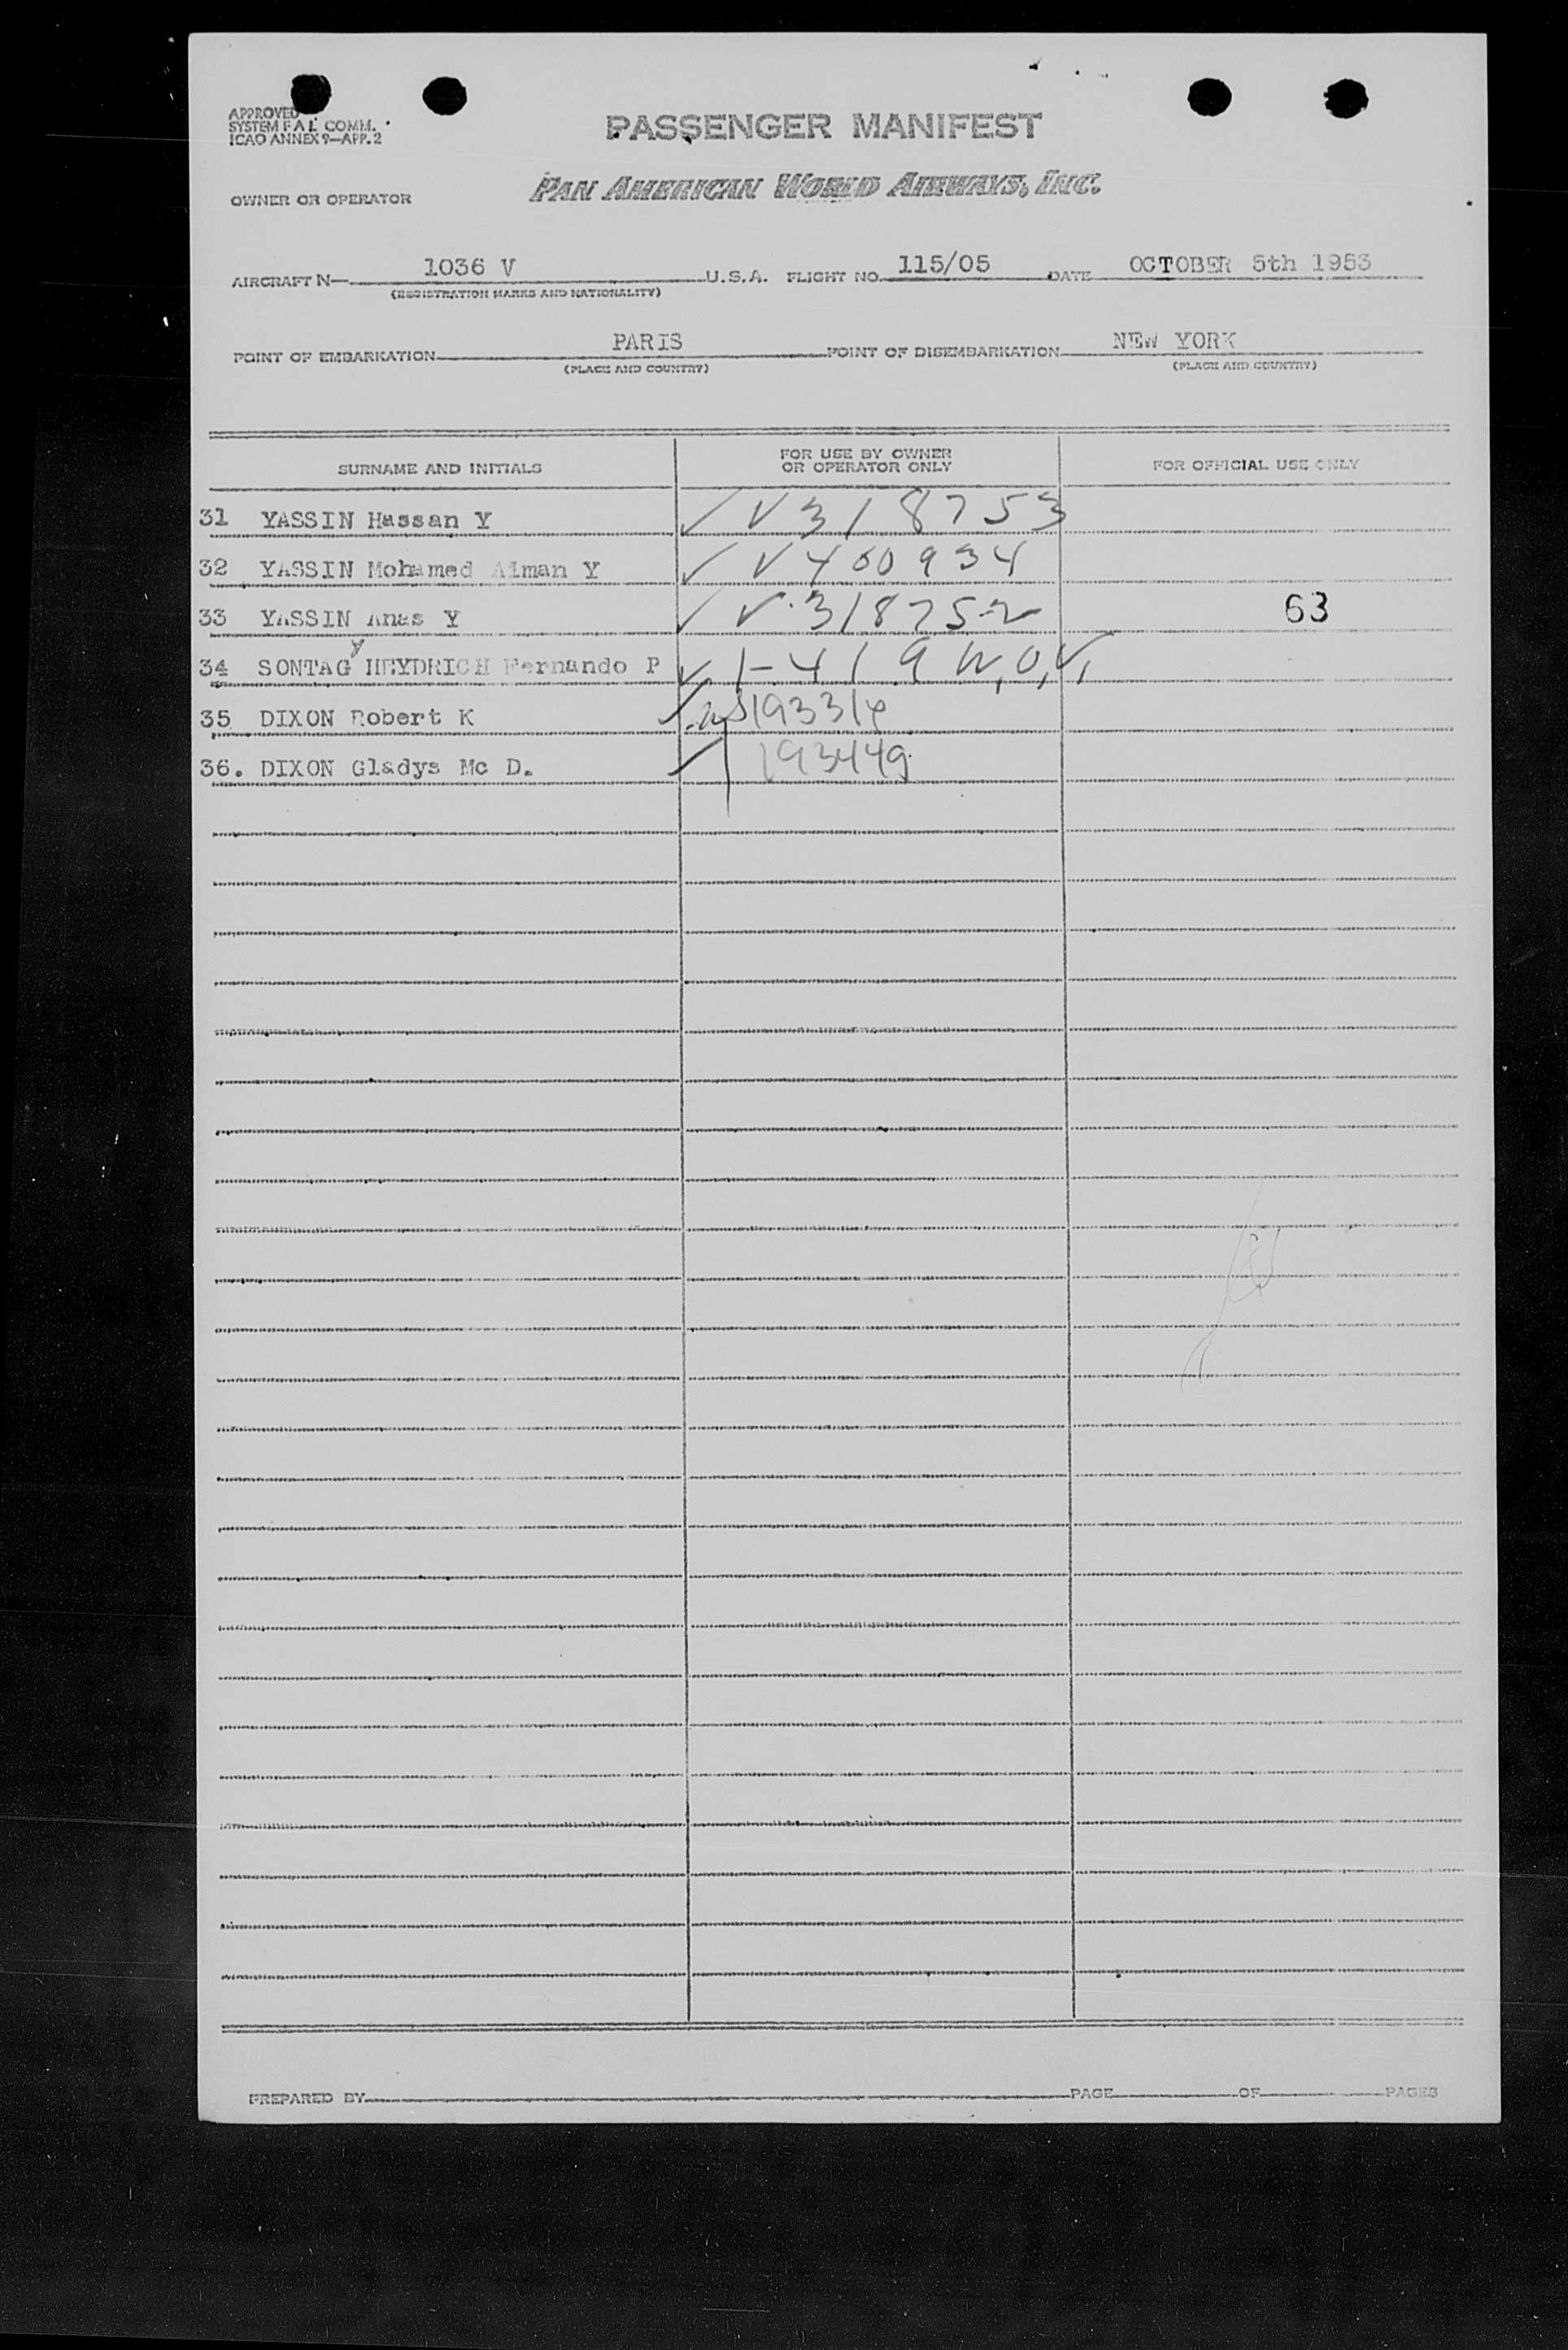 APPROVED
SYSTEM F A L COMM.
ICAO ANNEX 9—APP. 2
PASSENGER MANIFEST
OWNER OR OPERATOR
PAN AMERICAN WORLD AIRWAYS, INC.
AIRCRAFT N— 1036 V U.S.A. FLIGHT NO. 115/05 DATE OCTOBER 5th 1953
(REGISTRATION MARKS AND NATIONALITY)
POINT OF EMBARKATION PARIS POINT OF DISEMBARKATION NEW YORK
(PLACE AND COUNTRY) (PLACE AND COUNTRY)
SURNAME AND INITIALS FOR USE BY OWNER OR OPERATOR ONLY FOR OFFICIAL USE ONLY
31 YASSIN Hassan Y ✓ V 318753
32 YASSIN Mohamed Aiman Y ✓ V 400934
33 YASSIN Anas Y ✓ V 318752 63
34 SONTAG y HEYDRICH Fernando P ✓ 1-419 W.O.V.
35 DIXON Robert K ✓
36. DIXON Gladys Mc D. ✓ 193449
PREPARED BY PAGE OF PAGES